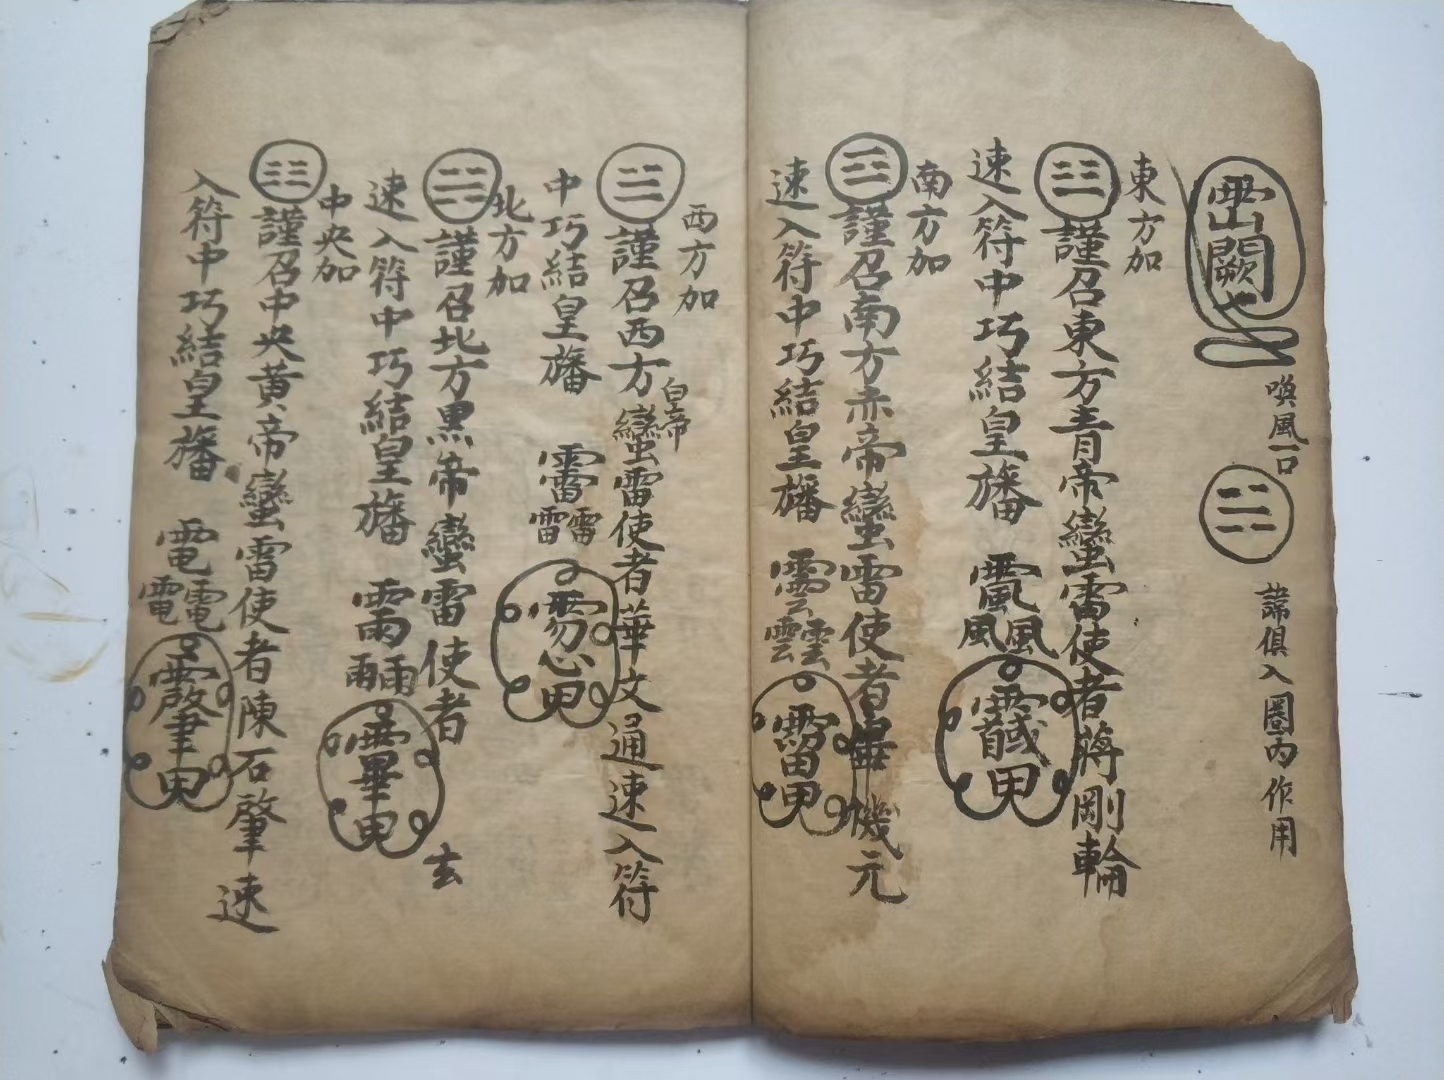 喚風一口
諱俱入圈內作用
東方加
謹召東方青帝蠻雷使者蔣剛輪
速入符中巧結皇旛
南方加
謹召南方赤帝蠻雷使者畢機元
速入符中巧結皇旛
西方加
謹召西方白帝蠻雷使者華文通速入符
中巧結皇旛 雷雷雷
北方加
謹召北方黑帝蠻雷使者 玄
速入符中巧結皇旛
中央加
謹召中央黃帝蠻雷使者陳石肇速
入符中巧結皇旛 電電電